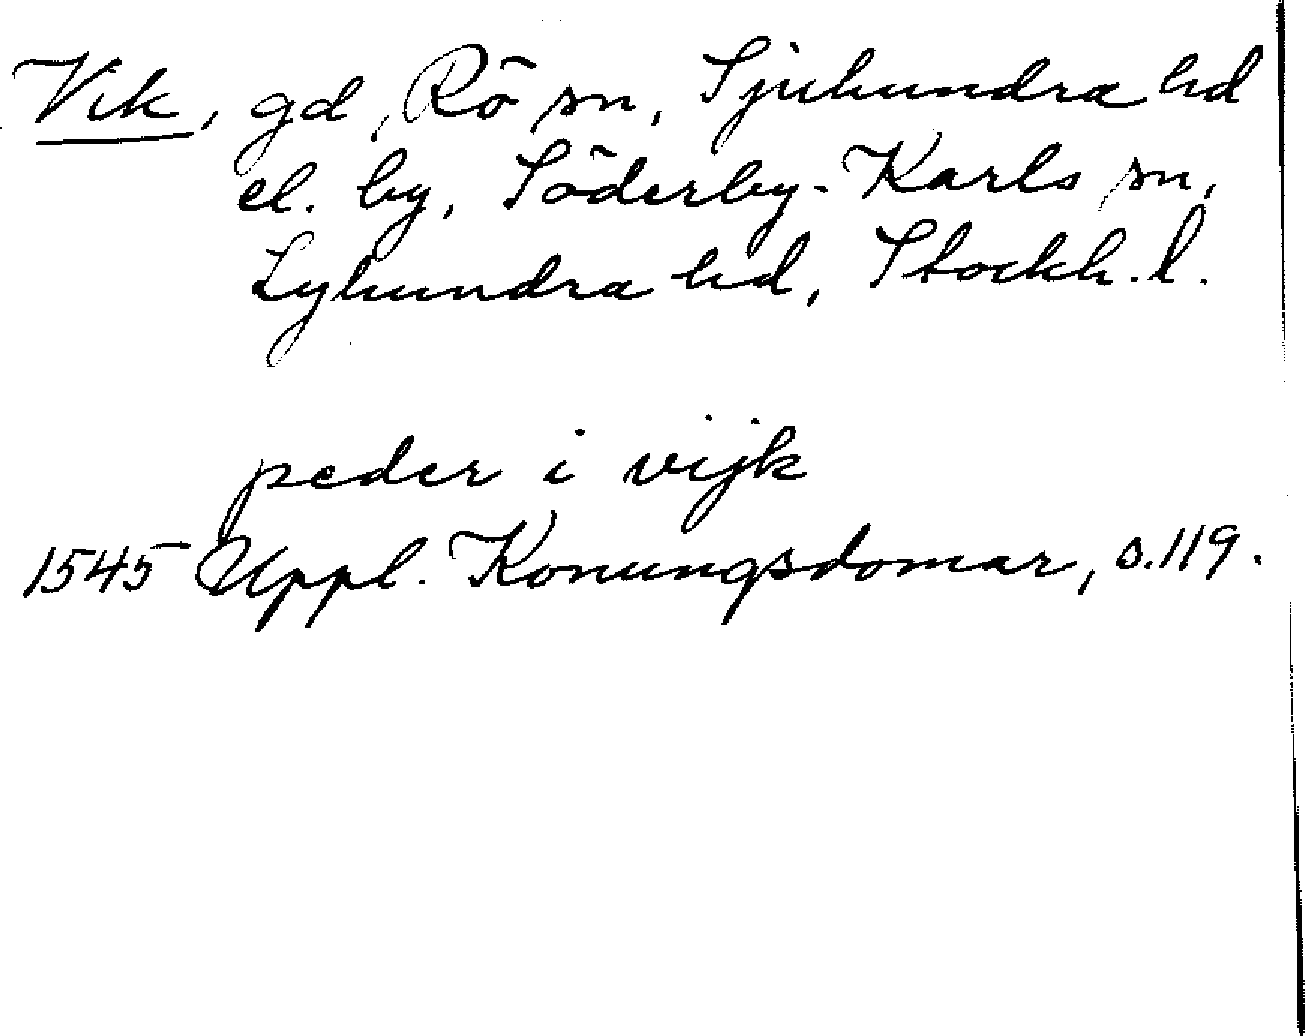 Vik, gd, Rö sn, Sjuhundra hd
el. by, Söderby-Karls sn,
Lyhundra hd, Stockh. l.
peder i vijk
1545 Uppl. Konungsdomar, s. 119.